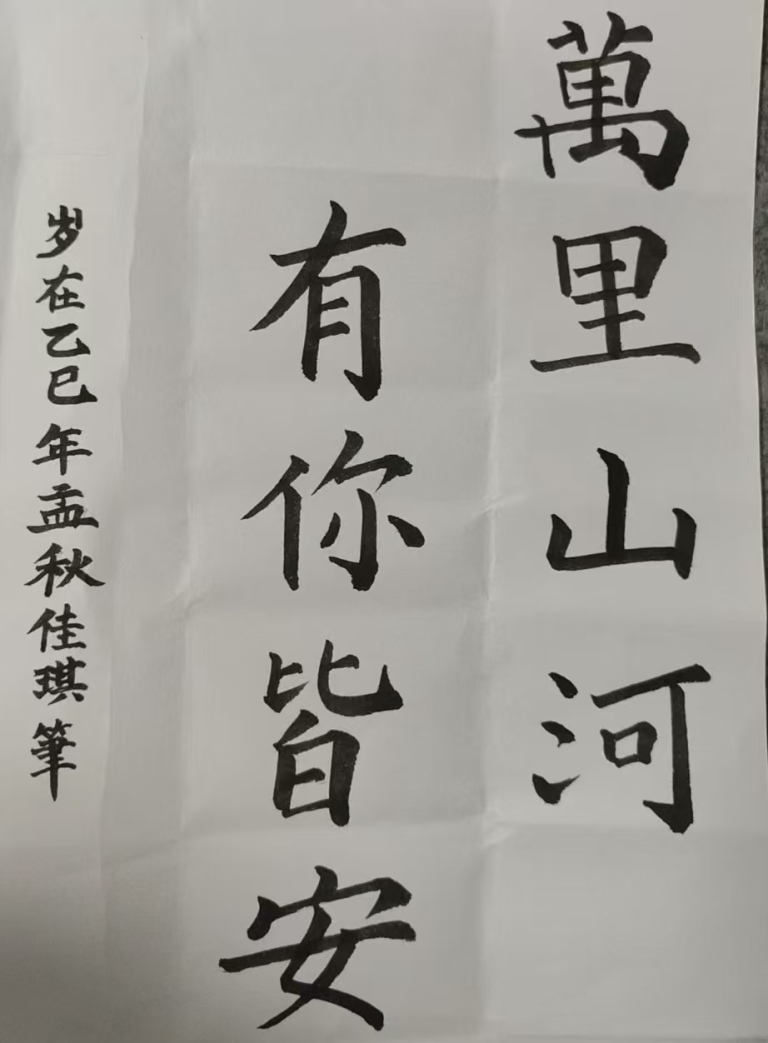 萬里山河
有你皆安
岁在乙巳年孟秋佳琪筆